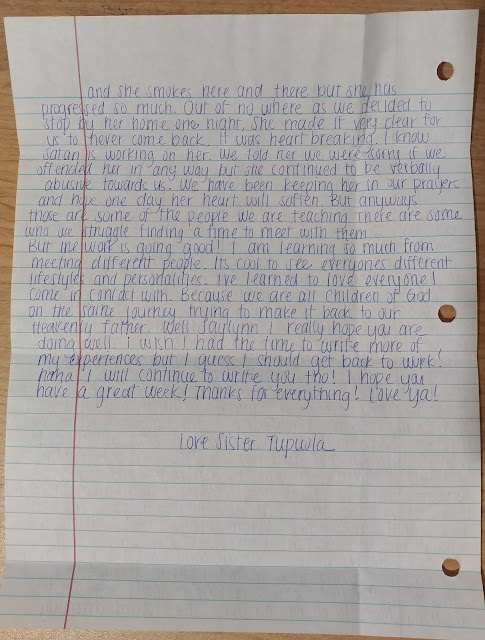 and she smokes here and there but she has
progressed so much. Out of no where as we decided to
stop by her home one night, she made it very clear for
us to never come back. It was heart breaking. I know
satan is working on her. We told her we were sorry if we
offended her in any way but she continued to be verbally
abusive towards us. We have been keeping her in our prayers
and hope one day her heart will soften. But anyways
those are some of the people we are teaching there are some
who we struggle finding a time to meet with them.
But the work is going good! I am learning so much from
meeting different people. Its cool to see everyones different
lifestyles and personalities. I've learned to love everyone I
come in contact with. Because we are all children of God
on the same journey trying to make it back to our
Heavenly father. Well Jaylynn I really hope you are
doing well. I wish I had the time to write more of
my experiences but I guess I should get back to work!
haha I will continue to write you tho! I hope you
have a great week! Thanks for everything! Love ya!
Love Sister Tupuola